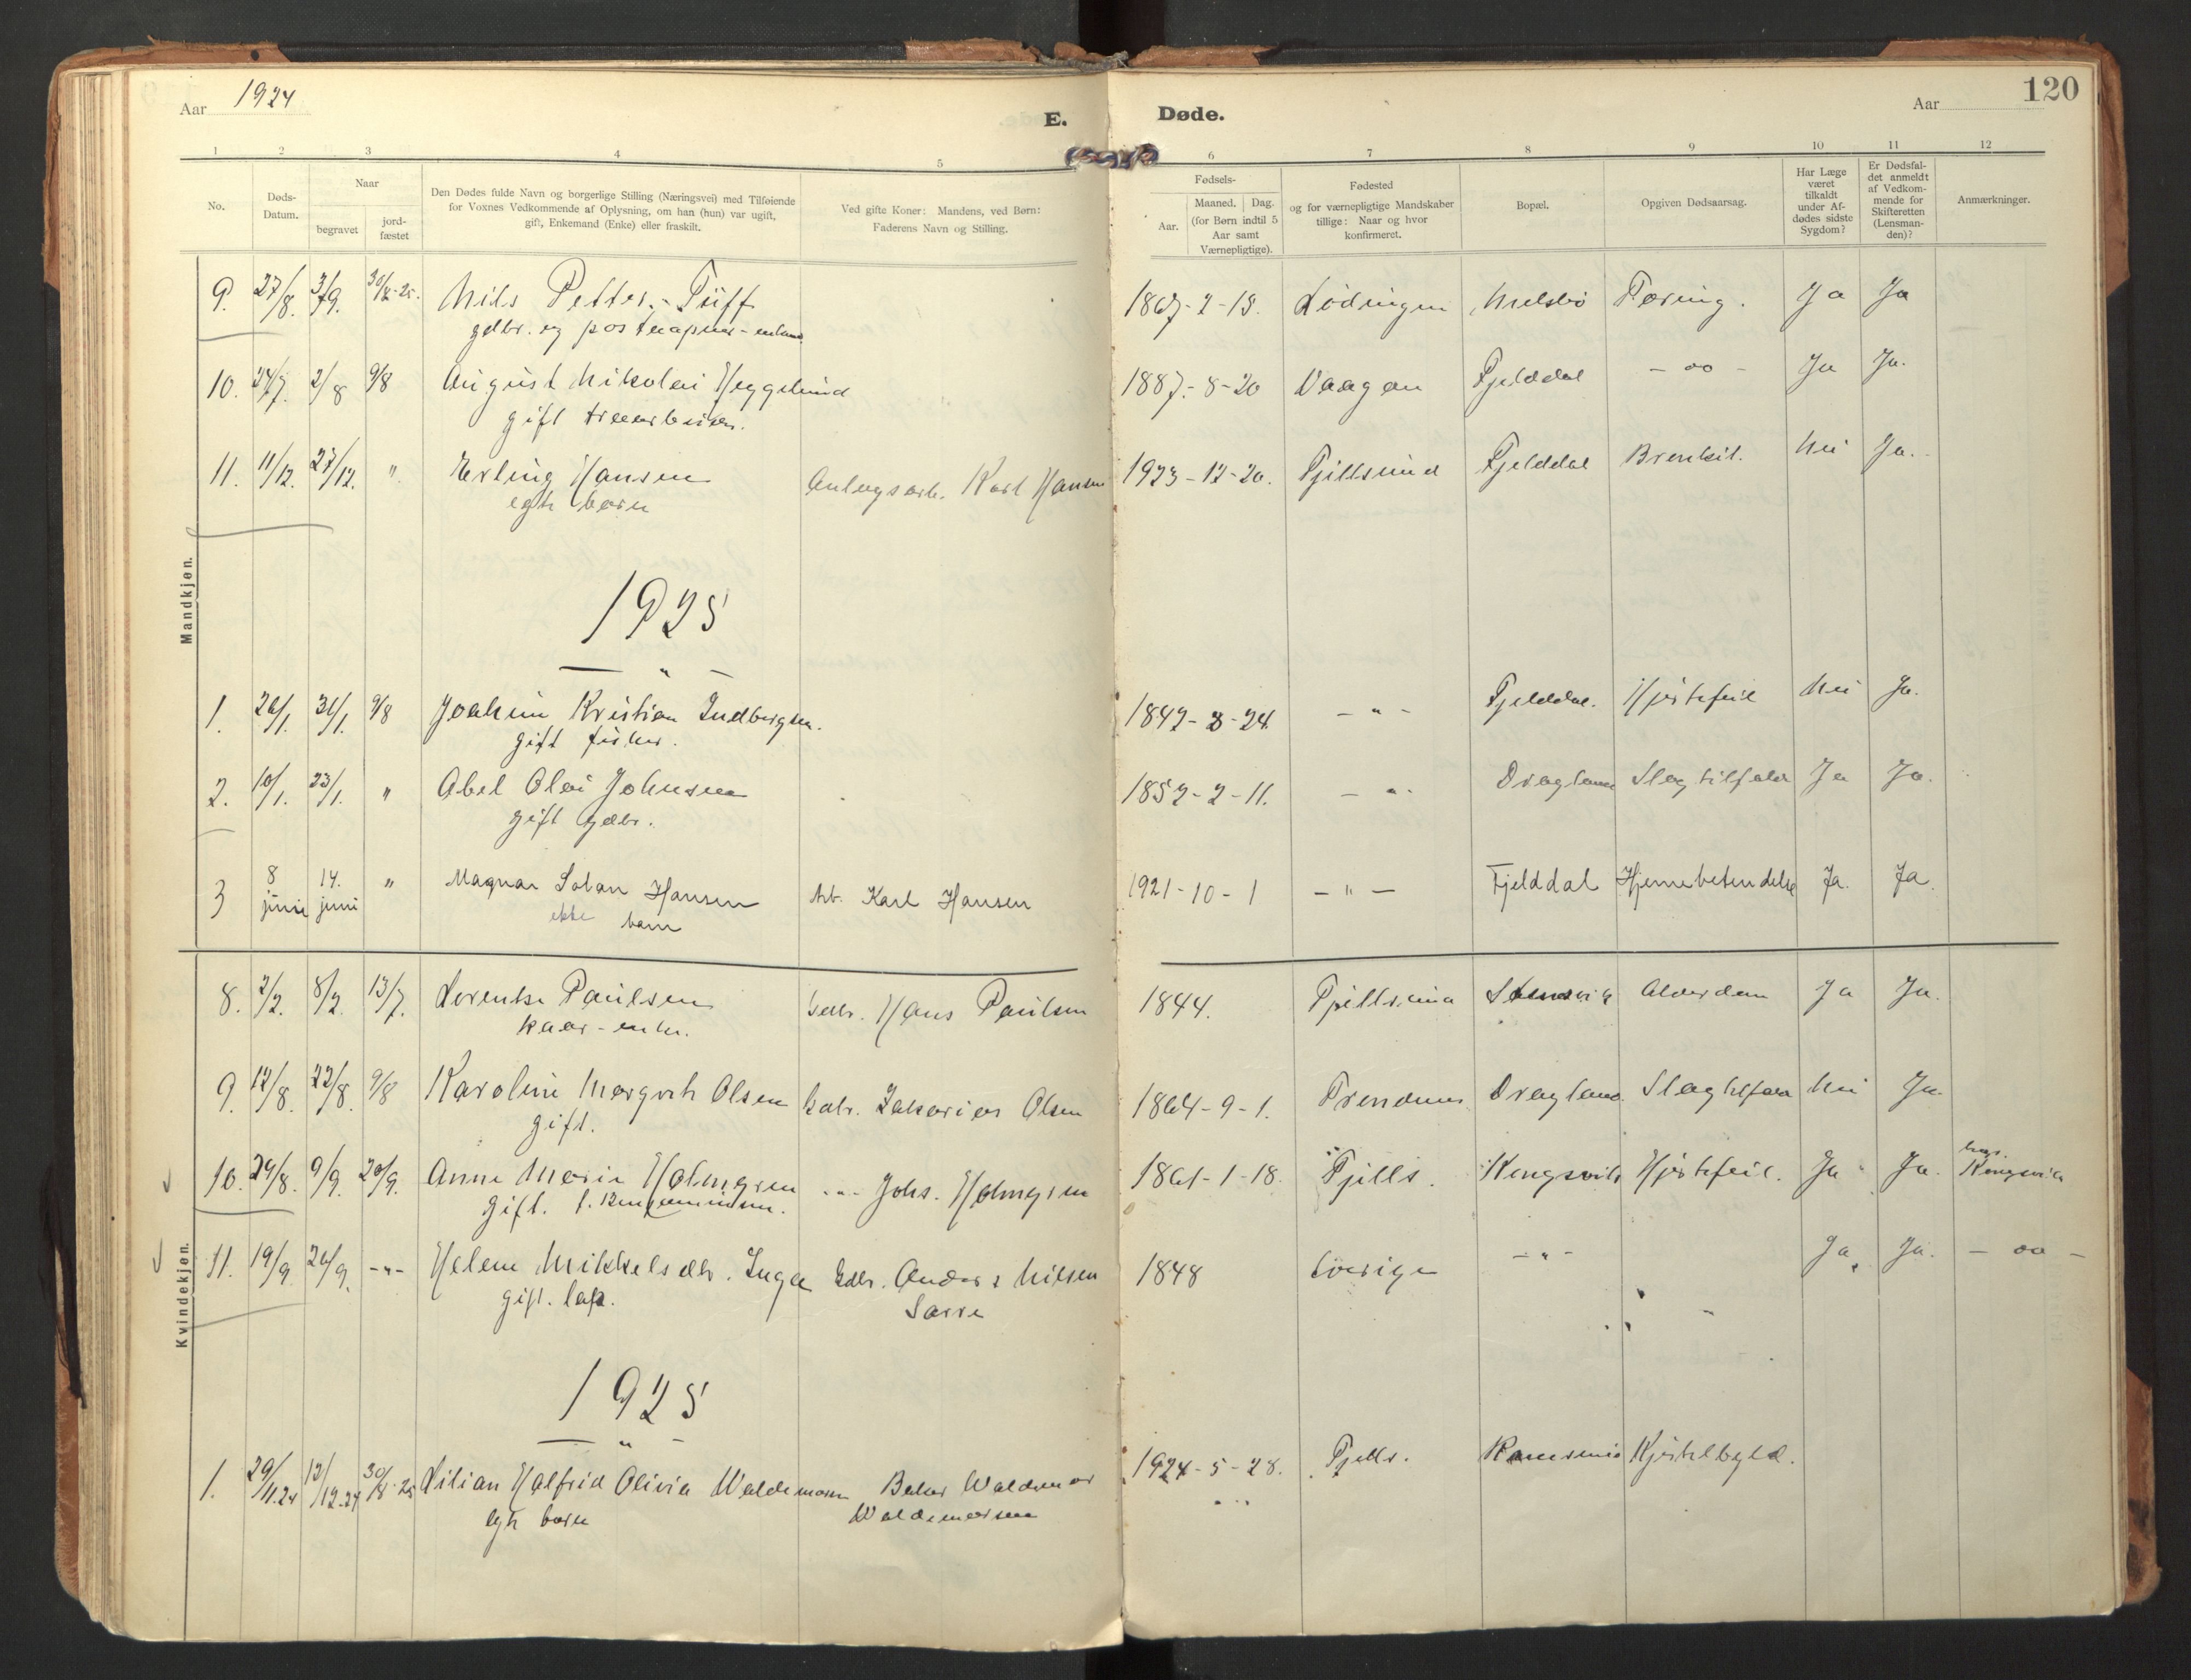 Aar 1924
E.
Døde.
Aar
120
1 2 3 4 5 6 7 8 9 10 11 12
No.
Døds-
Datum.
Naar
begravet
jord-
fæstet
Den Dødes fulde Navn og borgerlige Stilling (Næringsvei) med Tilføiende
for Voxnes Vedkommende af Oplysning, om han (hun) var ugift,
gift, Enkemand (Enke) eller fraskilt.
Ved gifte Koner: Mandens, ved Børn:
Faderens Navn og Stilling.
Fødsels-
Aar.
Maaned. Dag.
(for Børn indtil 5
Aar samt
Værnepligtige).
Fødested
og for værnepligtige Mandskaber
tillige: Naar og hvor
konfirmeret.
Bopæl.
Opgiven Dødsaarsag.
Har Læge
været
tilkaldt
under Af-
dødes sidste
Sygdom?
Er Dødsfal-
det anmeldt
af Vedkom-
mende for
Skifteretten
(Lensman-
den)?
Anmærkninger.
Mandkjøn.
9. 27/8. 3/9. Nils Petter Tüff 1867-2-18. Lødingen Tæring. Ja Ja
gdbr. og
10. 24/7. 2/8 9/8 August Nikolai Heggelund 1887-8-20 Vaagan Fjelddal - oo - Ja Ja.
gift
11. 11/12. 27/12. " Erling Hansen Anlegsarb. Karl Hansen 1923-12-20. Fjellsund Fjelddal Nei Ja.
egte barn
1925
— " —
1. 26/1. 31/1. 9/8 Joakim Kristian Indbergsen. 1842-8-24. - " - Fjelddal. Hjertefeil Nei Ja.
gift fisker.
2. 10/1. 23/1. " Abel Olai Johnsen 1852-2-11. - " - Dragland Slagtilfælde Ja Ja.
gift gdbr.
3 8 juni 14. juni " Magnar Johan Hansen Arb. Karl Hansen 1921-10-1 - " - Fjelddal Hjernebetendelse Ja. Ja.
ekte barn
Kvindekjøn.
8. 2/2. 8/2. 13/7. Lorentse Paulsen Gdbr. Hans Paulsen 1844. Fjellsund Alderdom Ja Ja.
kaar-enke.
9. 12/8. 22/8. 9/8 Karoline Margreth Olsen Gdbr. Zakarias Olsen 1864-9-1. Trondenes Dragland Slagtilfæld Nei Ja.
gift.
10. 29/8. 9/9. 20/9. Anne Marie Holmgren - " - Johs. Holmgren 1861-1-18. Fjells. Kongsvik Hjertefeil. Ja Ja. Kongsvik
gift. f. Benjaminsen.
11. 19/9. 26/9. - " - Helene Mikkelsdtr. Inga Gdbr. Anders Nilsen 1848 Sverige - " - Ja. Ja. - oo -
gift. lap. Sarre
1925
— " —
1. 29/11.24 12/12.24 30/8.25 Lilian Halfrid Olivia Waldemarsen Baker Waldemar 1924-5-28. Fjells. Ramsund Kjertelbyld.
egte barn Waldemarsen